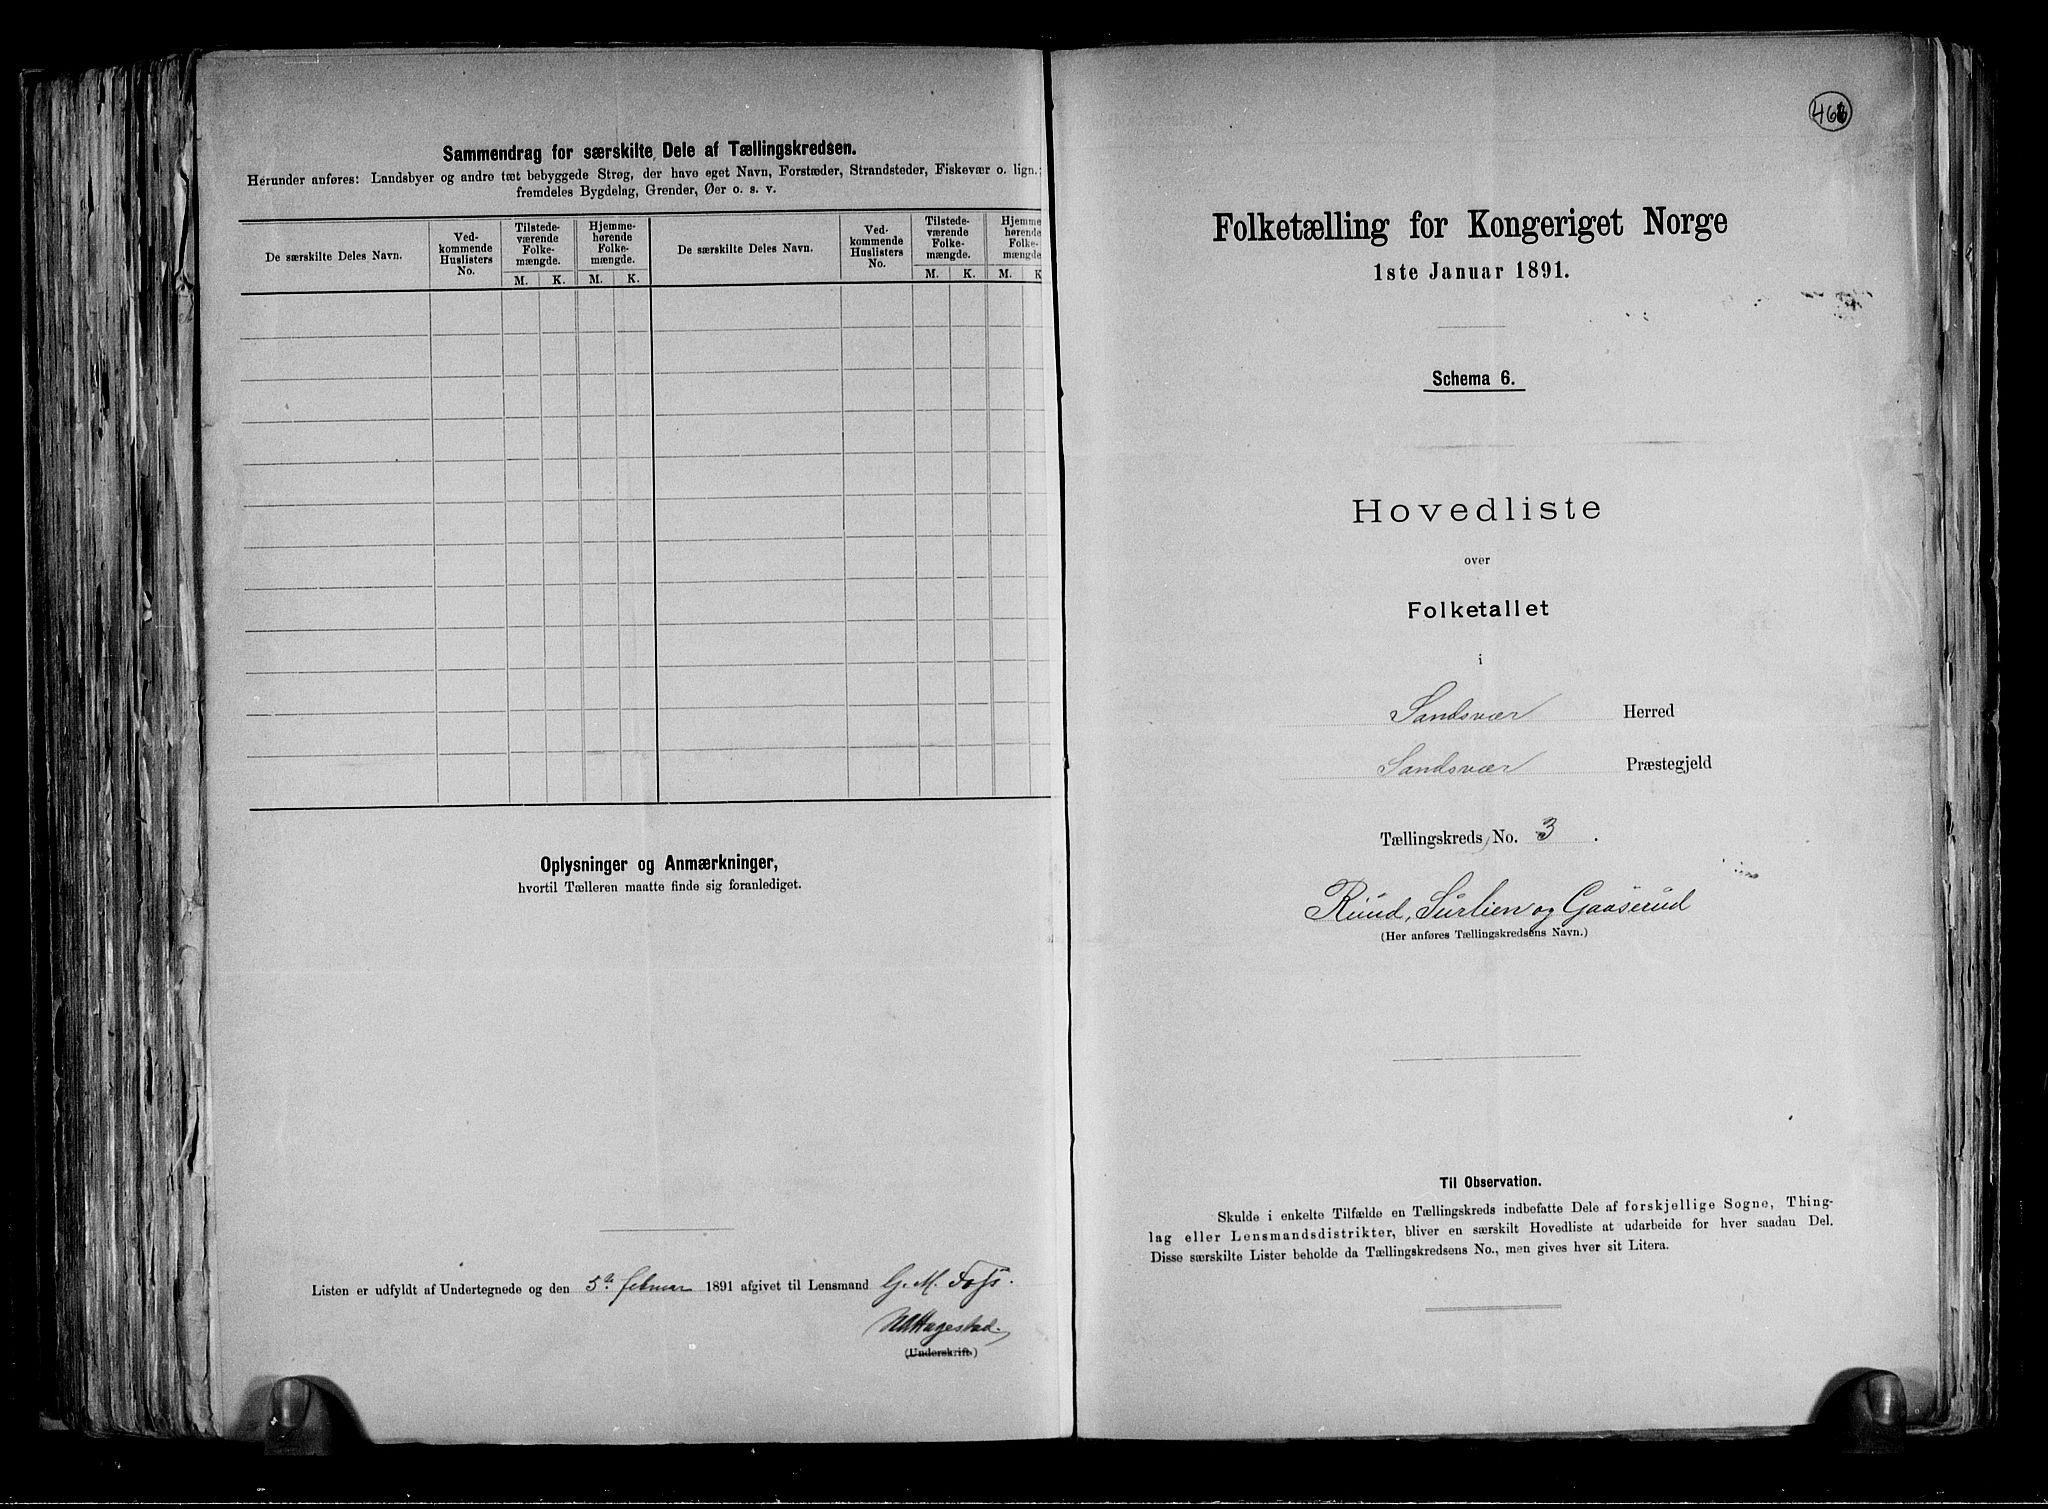 Sammendrag for særskilte Dele af Tællingskredsen.
Herunder anføres: Landsbyer og andre tæt bebyggede Strøg, der have eget Navn, Forstæder, Strandsteder, Fiskevær o. lign.;
fremdeles Bygdelag, Grender, Øer o. s. v.
De særskilte Deles Navn.
Ved-
kommende
Huslisters
No.
Tilstede-
værende
Folke-
mængde.
Hjemme-
hørende
Folke-
mængde.
M. K. M. K.
De særskilte Deles Navn.
Ved-
kommende
Huslisters
No.
Tilstede-
værende
Folke-
mængde.
Hjemme
hørende
Folke-
mængde
M. K. M. K
Oplysninger og Anmærkninger,
hvortil Tælleren maatte finde sig foranlediget.
Listen er udfyldt af Undertegnede og den 5te februar 1891 afgivet til Lensmand G. M. Foss.
Hagestad.
(Underskrift.)
Folketælling for Kongeriget Norge
1ste Januar 1891.
Schema 6.
Hovedliste
over
Folketallet
i
Sandsvær Herred
Sandsvær Præstegjeld
Tællingskreds No. 3.
Ruud, Surlien og Gaaserud
(Her anføres Tællingskredsens Navn.)
Til Observation.
Skulde i enkelte Tilfælde en Tællingskreds indbefatte Dele af forskjellige Sogne, Thing-
lag eller Lensmandsdistrikter, bliver en særskilt Hovedliste at udarbeide for hver saadan Del.
Disse særskilte Lister beholde da Tællingskredsens No., men gives hver sit Litera.